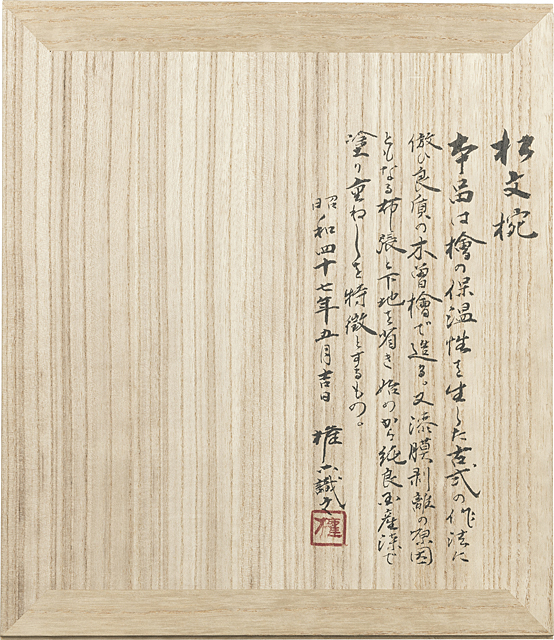 松文椀
本品は檜の保温性を生した古式の作法に
倣ひ良質の木曽檜で造る。又漆膜剥離の原因
ともなる布張と下地を省き始めから純良国産漆で
塗り重ねしを特徴とするもの。
昭和四十七年五月吉日
権六識之
權